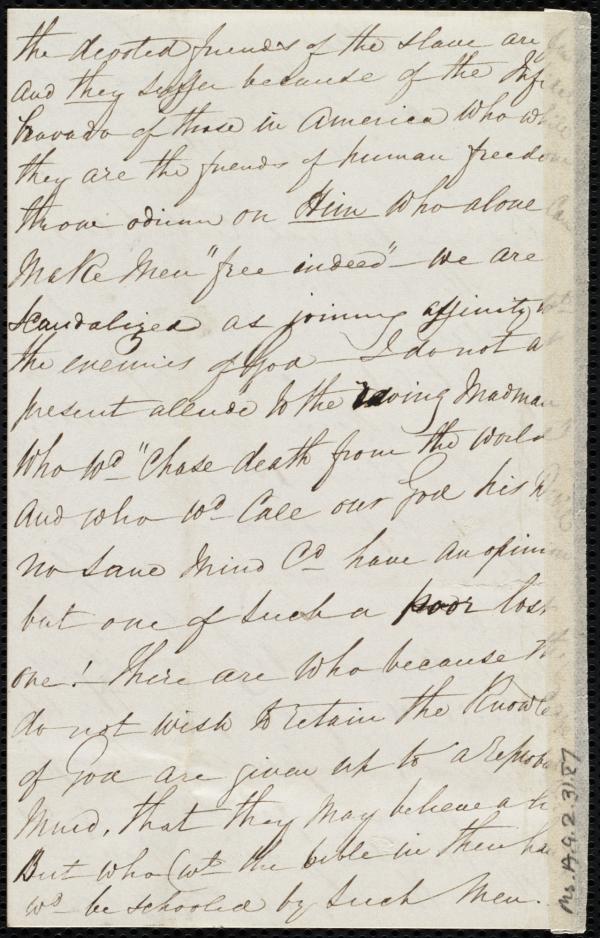 the devoted friends of the slave are
and they suffer because of the Inf
bravado of those in America who while
they are the friends of human freedom
throw odium on Him who alone Can
make men "free indeed" - we are
scandalized as joining affinity wt
the enemies of God - I do not at
present allude to the raving Madman
who wd "Chase death from the world"
and who wd Call our God his
no sane mind Cd have an opinion
but one of such a poor lost
one! There are who because they
do not wish to retain the Knowledge
of God are given up to a reproba
mind, that they may believe a li
But who (wt the bible in their han
wd be schooled by such men.
Ms. A.9.2.31.27